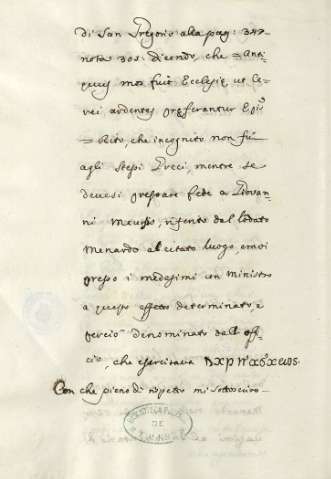 di San Gregorio alla pag: 347
nota 305. dicendo, che = Anti-
quus mos fuit Ecclesię, ut Ce-
rei ardentes pręferantur Epis
= che incognito non fu
agli stessi Greci, mentre se
devesi prestare fede a Giovan-
ni Meursio, riferito dal lodato
Menardo al citato luogo, eravi
presso i medesimi un Ministro
a questo effetto determinato, e
perciò denominato dall'offi-
cio, che esercitava
Con che pieno di rispetto mi sottoscrivo
BIBLIOTECA
DE